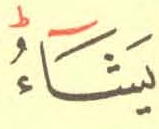 يَشَآءُ ط